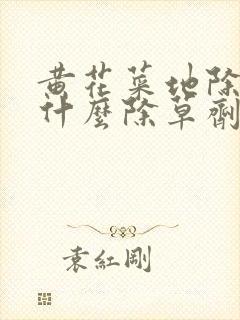 黄花菜地除
什麼除草劑
袁紅剛